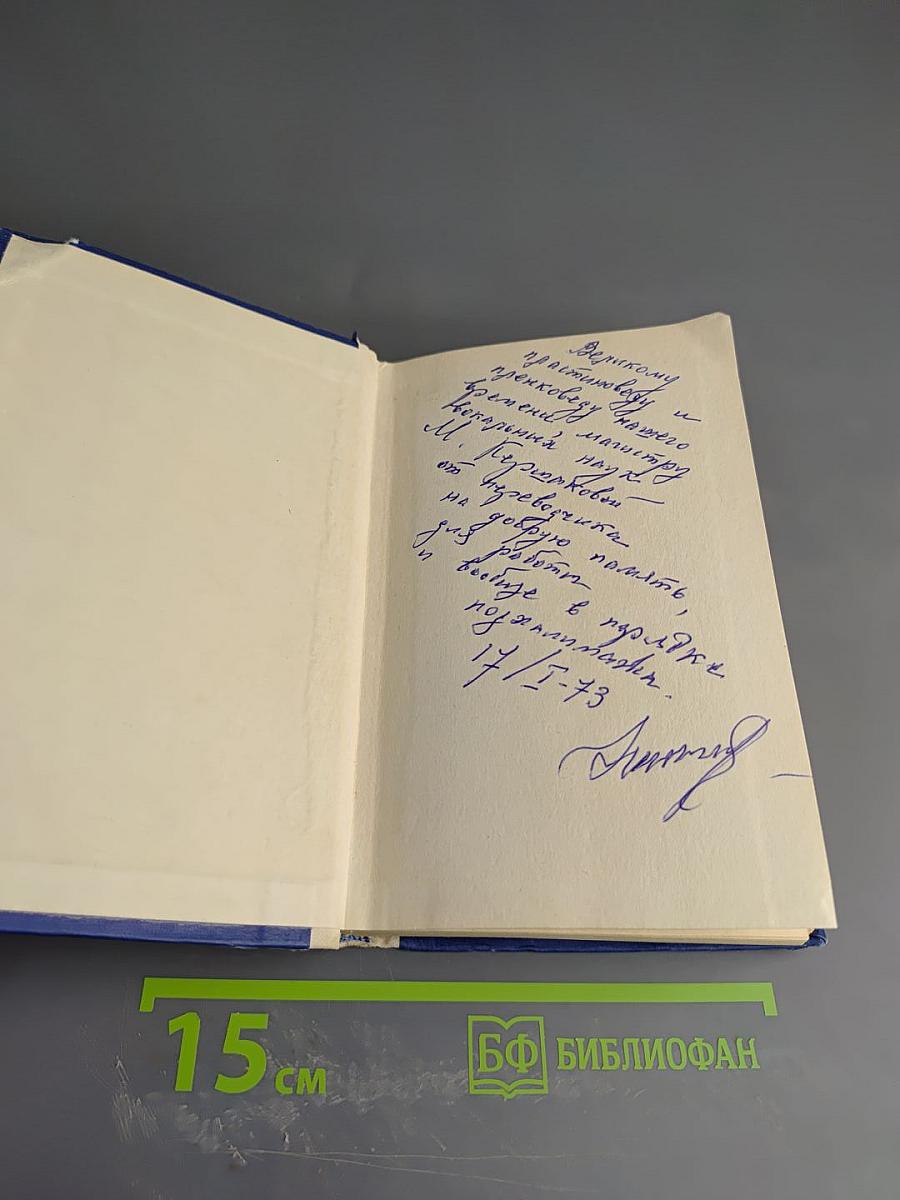 Великому
пластинковеду и
пленковеду нашего
времени магистру
вокальных наук
М. 
от переводчика
на добрую память,
для работы
и вообще в порядке
подхалимажа.
17/I-73
15 см
БФ БИБЛИОФАН